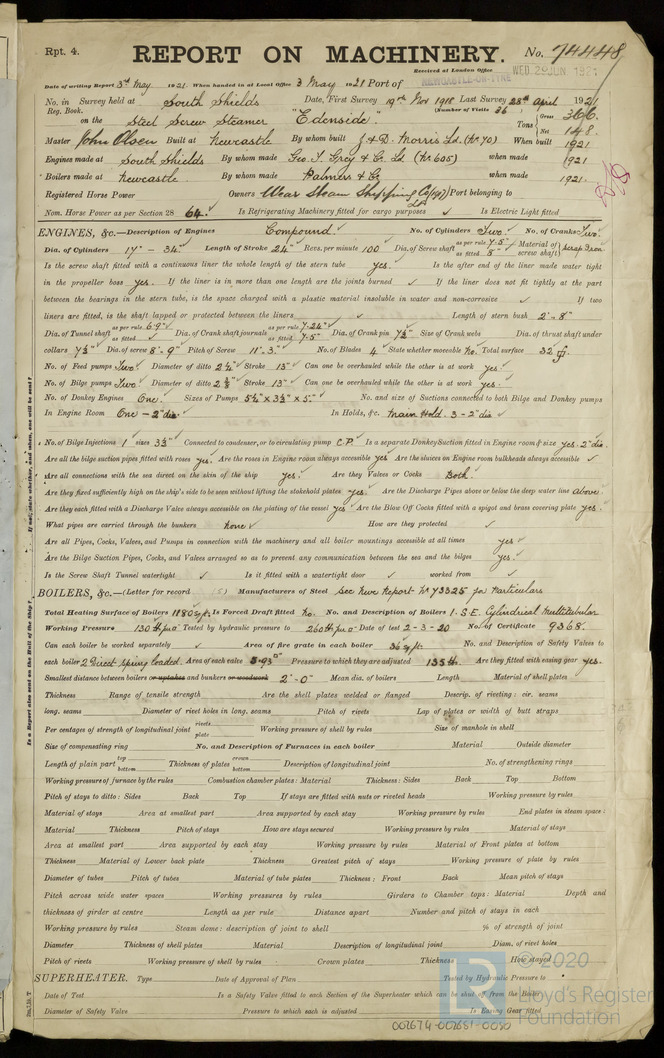 Rpt. 4.
REPORT ON MACHINERY. No. 74448
Received at London Office WED. 29 JUN. 1921
NEWCASTLE-ON-TYNE
Date of writing Report 3rd May 1921. When handed in at Local Office 3 May 1921 Port of
No. in Survey held at South Shields Date, First Survey 19th Nov 1918 Last Survey 28th April 1921
Reg. Book. (Number of Visits 36
on the Steel Screw Steamer "Edenside" Tons Gross 366. Net 148.
Master John Olsen Built at Newcastle By whom built J & D. Morris Ld. (No 70) When built 1921
Engines made at South Shields By whom made Geo. T. Grey & Co. Ld (No. 605) when made 1921
Boilers made at Newcastle By whom made Palmers & Co when made 1921.
Registered Horse Power Owners Wear Steam Shipping Co Ld Port belonging to
Nom. Horse Power as per Section 28 64. Is Refrigerating Machinery fitted for cargo purposes ✓ Is Electric Light fitted
ENGINES, &c.—Description of Engines Compound No. of Cylinders Two No. of Cranks Two.
Dia. of Cylinders 17" - 34" Length of Stroke 24" Revs. per minute 100 Dia. of Screw shaft as per rule 7.5" as fitted 8" Material of screw shaft Scrap Iron
Is the screw shaft fitted with a continuous liner the whole length of the stern tube yes. Is the after end of the liner made water tight
in the propeller boss yes. If the liner is in more than one length are the joints burned ✓ If the liner does not fit tightly at the part
between the bearings in the stern tube, is the space charged with a plastic material insoluble in water and non-corrosive ✓ If two
liners are fitted, is the shaft lapped or protected between the liners ✓ Length of stern bush 2' - 8"
Dia. of Tunnel shaft as per rule 6.9" as fitted ✓ Dia. of Crank shaft journals as per rule 7.24" as fitted 7.5" Dia. of Crank pin 7½" Size of Crank webs Dia. of thrust shaft under
collars 7½" Dia. of screw 8' - 9" Pitch of Screw 11' - 3." No. of Blades 4 State whether moveable No. Total surface 32 ft.
No. of Feed pumps Two. Diameter of ditto 2¼" Stroke 13" Can one be overhauled while the other is at work yes.
No. of Bilge pumps Two. Diameter of ditto Stroke 13" Can one be overhauled while the other is at work yes.
No. of Donkey Engines One. Sizes of Pumps 5¼" x 3½" x 5." No. and size of Suctions connected to both Bilge and Donkey pumps
In Engine Room One - 2" dia. In Holds, &c. Main Hold. 3 - 2" dia
No. of Bilge Injections 1 sizes 3½" Connected to condenser, or to circulating pump C.P. Is a separate Donkey Suction fitted in Engine room & size yes. 2" dia.
Are all the bilge suction pipes fitted with roses yes. Are the roses in Engine room always accessible yes Are the sluices on Engine room bulkheads always accessible ✓
Are all connections with the sea direct on the skin of the ship yes. Are they Valves or Cocks Both.
Are they fixed sufficiently high on the ship's side to be seen without lifting the stokehold plates yes. Are the Discharge Pipes above or below the deep water line above.
Are they each fitted with a Discharge Valve always accessible on the plating of the vessel yes Are the Blow Off Cocks fitted with a spigot and brass covering plate yes.
What pipes are carried through the bunkers none How are they protected ✓
Are all Pipes, Cocks, Valves, and Pumps in connection with the machinery and all boiler mountings accessible at all times yes
Are the Bilge Suction Pipes, Cocks, and Valves arranged so as to prevent any communication between the sea and the bilges yes.
Is the Screw Shaft Tunnel watertight ✓ Is it fitted with a watertight door ✓ worked from ✓
BOILERS, &c.—(Letter for record (S) Manufacturers of Steel See Nwc Report No 73325 for Particulars
Total Heating Surface of Boilers 1180 sq ft. Is Forced Draft fitted No. No. and Description of Boilers 1. S.E. Cylindrical Multitubular
Working Pressure 130 Tested by hydraulic pressure to 260 Date of test 2-3-20 No. of Certificate 9368.
Can each boiler be worked separately ✓ Area of fire grate in each boiler 36 sq ft. No. and Description of Safety Valves to
each boiler 2 Direct spring loaded. Area of each valve 5.93 Pressure to which they are adjusted 135 Are they fitted with easing gear yes.
Smallest distance between boilers or uptakes and bunkers or woodwork 2' - 0" Mean dia. of boilers Length Material of shell plates
Thickness Range of tensile strength Are the shell plates welded or flanged Descrip. of riveting: cir. seams
long. seams Diameter of rivet holes in long. seams Pitch of rivets Lap of plates or width of butt straps
Per centages of strength of longitudinal joint rivets plate Working pressure of shell by rules Size of manhole in shell
Size of compensating ring No. and Description of Furnaces in each boiler Material Outside diameter
Length of plain part top bottom Thickness of plates crown bottom Description of longitudinal joint No. of strengthening rings
Working pressure of furnace by the rules Combustion chamber plates: Material Thickness: Sides Back Top Bottom
Pitch of stays to ditto: Sides Back Top If stays are fitted with nuts or riveted heads Working pressure by rules
Material of stays Area at smallest part Area supported by each stay Working pressure by rules End plates in steam space:
Material Thickness Pitch of stays How are stays secured Working pressure by rules Material of stays
Area at smallest part Area supported by each stay Working pressure by rules Material of Front plates at bottom
Thickness Material of Lower back plate Thickness Greatest pitch of stays Working pressure of plate by rules
Diameter of tubes Pitch of tubes Material of tube plates Thickness: Front Back Mean pitch of stays
Pitch across wide water spaces Working pressures by rules Girders to Chamber tops: Material Depth and
thickness of girder at centre Length as per rule Distance apart Number and pitch of stays in each
Working pressure by rules Steam dome: description of joint to shell % of strength of joint
Diameter Thickness of shell plates Material Description of longitudinal joint Diam. of rivet holes
Pitch of rivets Working pressure of shell by rules Crown plates Thickness How stayed
SUPERHEATER. Type Date of Approval of Plan Tested by Hydraulic Pressure to
Date of Test Is a Safety Valve fitted to each Section of the Superheater which can be shut off from the Boiler
Diameter of Safety Valve Pressure to which each is adjusted Is Easing Gear fitted
© 2020
Lloyd's Register
Foundation
002674-002681-0080